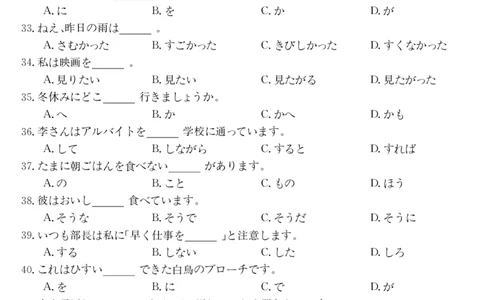 A.に B.を C.か D.が
33.ねえ、昨日の雨は______ 。
A.さむかった B.すごかった C.きびしかった D.すくなかった
34.私は映画を______ 。
A.見りたい B.見たい C.見たがる D.見たがった
35.冬休みにどこ______ 行きましょうか。
A.へ B.か C.かへ D.かも
36.李さんはアルバイトを______ 学校に通っています。
A.して B.しながら C.すると D.すれば
37.たまに朝ごはんを食べない______ があります。
A.の B.こと C.もの D.ほう
38.彼はおいし______ 食べています。
A.そうな B.そうで C.そうだ D.そうに
39.いつも部長は私に「早く仕事を______ 」と注意します。
A.する B.しない C.した D.しろ
40.これはひすい______ できた白鳥のブローチです。
A.を B.に C.で D.が